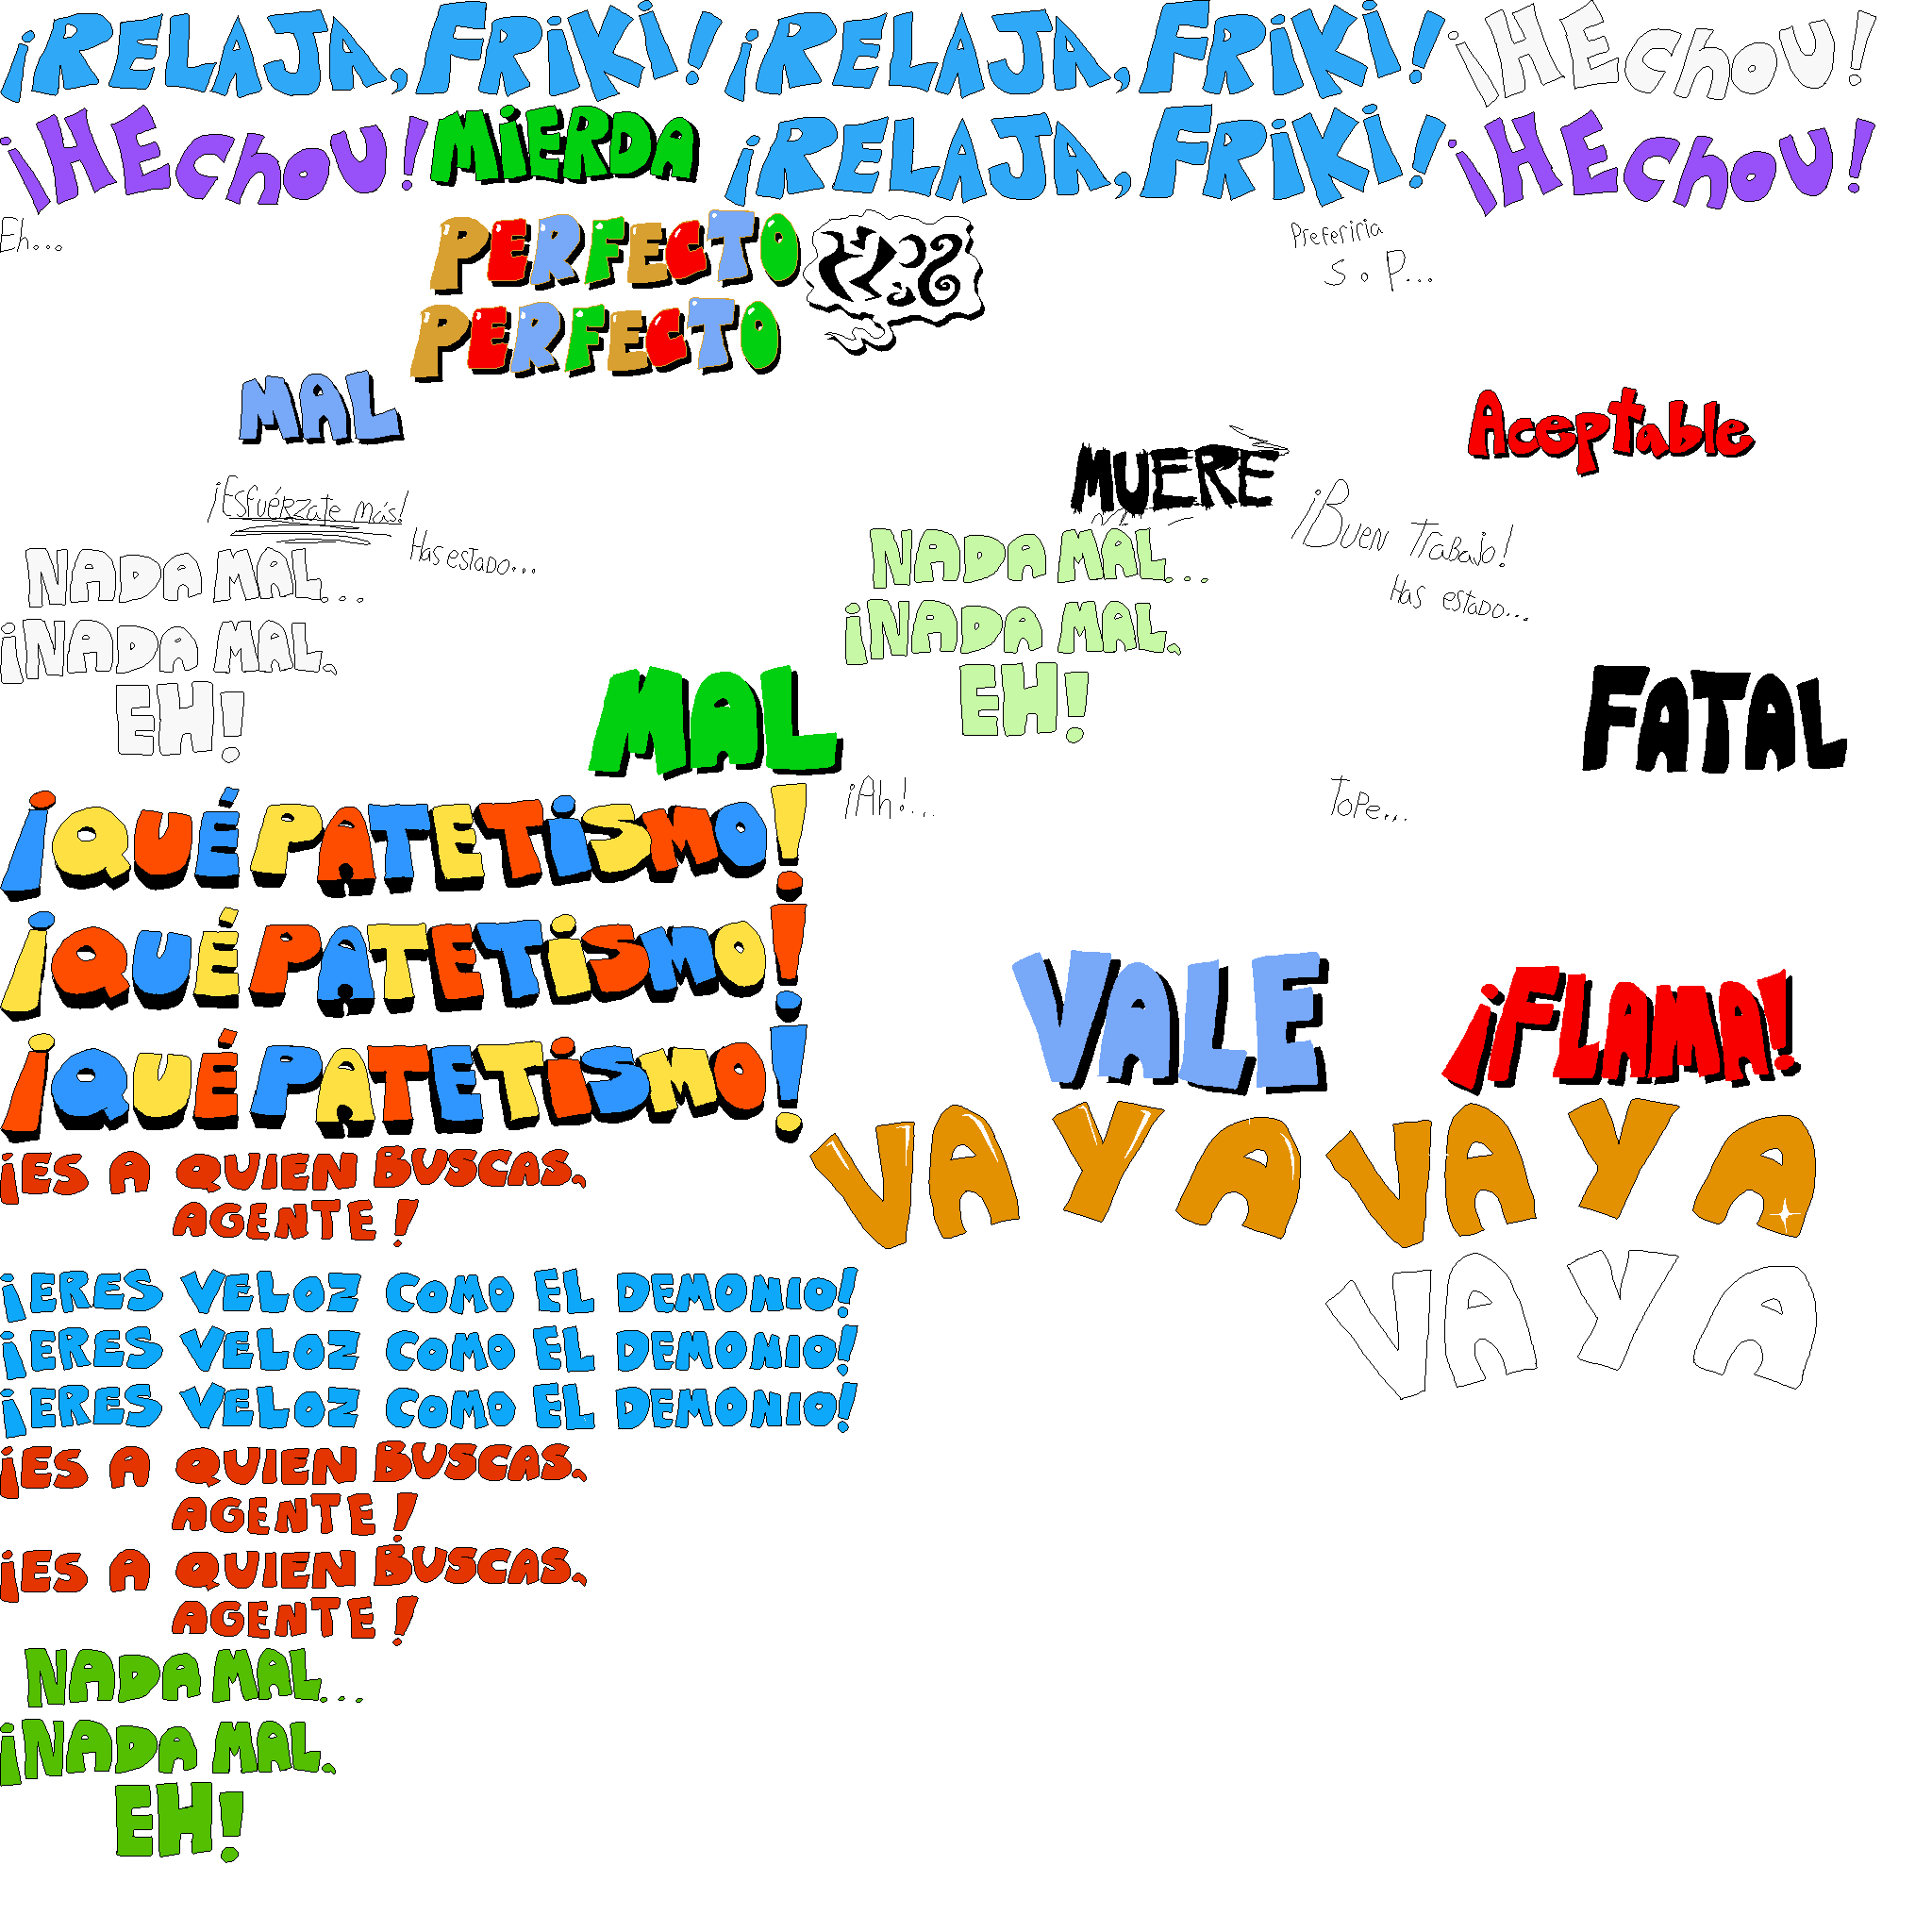 ¡RELAJA, FRiKi! ¡RELAJA, FRiKi! ¡HEchoU!
¡HEchoU! MiERDA ¡RELAJA, FRiKi! ¡HEchoU!
Eh...
PERFECTO
Preferiria
S o P...
PERFECTO
MAL
Aceptable
MUERE
¡EsfuéRzate más!
¡BUEN TRaBajo!
Has estaDo...
NADA MAL...
NADA MAL...
Has estaDo...
¡NADA MAL,
EH!
¡NADA MAL,
EH!
MAL
FATAL
¡Ah!...
ToPe...
¡QUÉ PATETiSMO!
¡QUÉ PATETiSMO!
¡QUÉ PATETiSMO!
VALE
¡FLAMA!
VAYA VAYA
¡ES A QUIEN BUSCAS,
AGENTE!
VAYA
¡ERES VELOZ COMO EL DEMONIO!
¡ERES VELOZ COMO EL DEMONIO!
¡ERES VELOZ COMO EL DEMONIO!
¡ES A QUIEN BUSCAS,
AGENTE!
¡ES A QUIEN BUSCAS,
AGENTE!
NADA MAL...
¡NADA MAL,
EH!